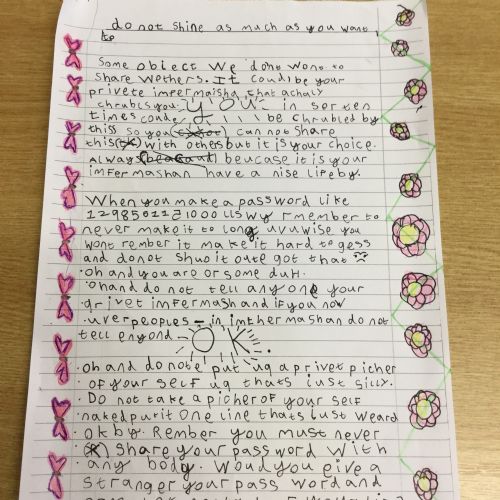 do not shine as much as you want
to
Some object we dont wont to
share wethers. It could be your
privete imfermaisha that achaly
chrubls you. you in sorten
times conde be chrubled by
this so you can not share
this with others but it is your choice.
Always beucase it is your
imfermashan have a nise life by.
When you make a password like
wy rmember to
never make it to long uvuwise you
wont rember it make it hard to gess
and do not shuo it oute got that
oh and you are or some duh.
oh and do not tell any one your
privet imfermash and if you now
uver peoples in imfhermashan do not
tell enyond OK
oh and do note put ug a privet picher
of your self ug thats just silly.
Do not take a picher of your self
naked purit one line thats just weard
ok by. Rember you must never
share your password with
any body. Woud you give a
stranger your pass word and